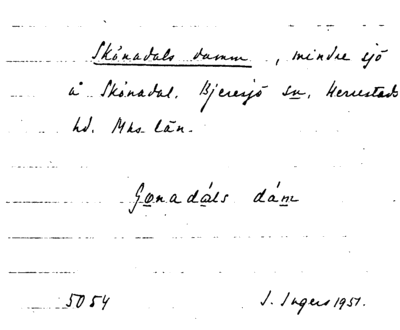 Skönadals damm, mindre sjö
å Skönadal. Bjeresjö sn, Herrestads
hd. Mhs län.
dám
5054 I. Ingers 1951.